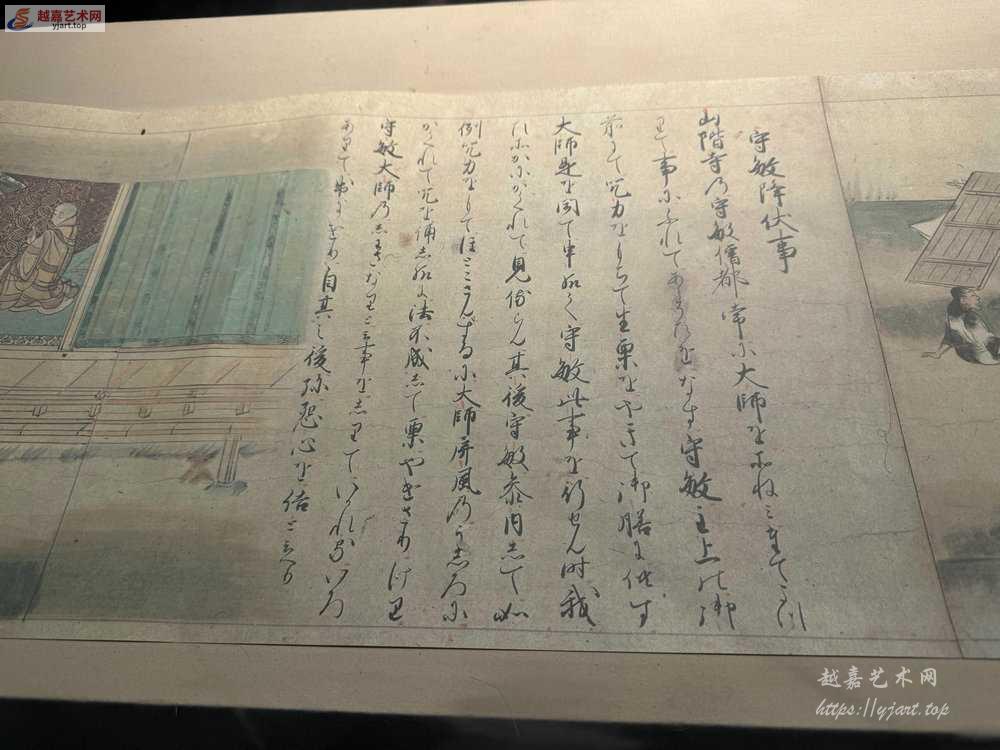 越嘉艺术网
yjart.top
守敏降伏事
山階寺乃守敏僧都常尓大師をそねミ
事尓ふれてあらそひをなす守敏主上乃御
前にて咒力をもちて生栗をやきて御膳に供す
大師是を聞て申給く守敏此事を行せん時我
かくれて見侍らん其後守敏参内して如
例咒力をもてほとこさんする尓大師屏風乃うしろ尓
かくれて咒を誦し給に法不成して栗やけさりけり
守敏大師乃しわさなりと云事をしりていかれるいろ
ありて自其之後弥怨心を結と云々
越嘉艺术网
https://yjart.top